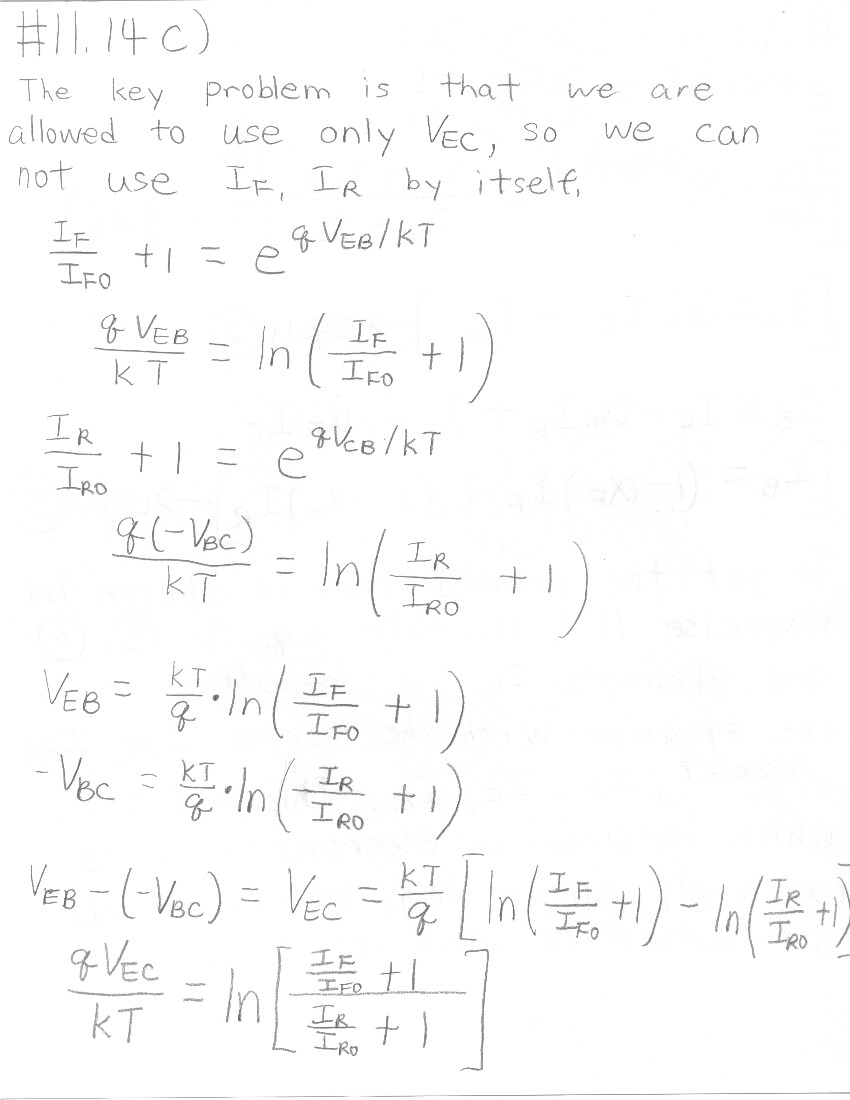 #11.14 c)
The key problem is that we are
allowed to use only V_EC, so we can
not use I_F, I_R by itself.
I_F/I_F0 + 1 = e^(qV_EB/kT)
qV_EB/kT = ln(I_F/I_F0 + 1)
I_R/I_R0 + 1 = e^(qV_CB/kT)
q(-V_BC)/kT = ln(I_R/I_R0 + 1)
V_EB = kT/q · ln(I_F/I_F0 + 1)
-V_BC = kT/q · ln(I_R/I_R0 + 1)
V_EB - (-V_BC) = V_EC = kT/q [ln(I_F/I_F0 + 1) - ln(I_R/I_R0 + 1)]
qV_EC/kT = ln[(I_F/I_F0 + 1)/(I_R/I_R0 + 1)]